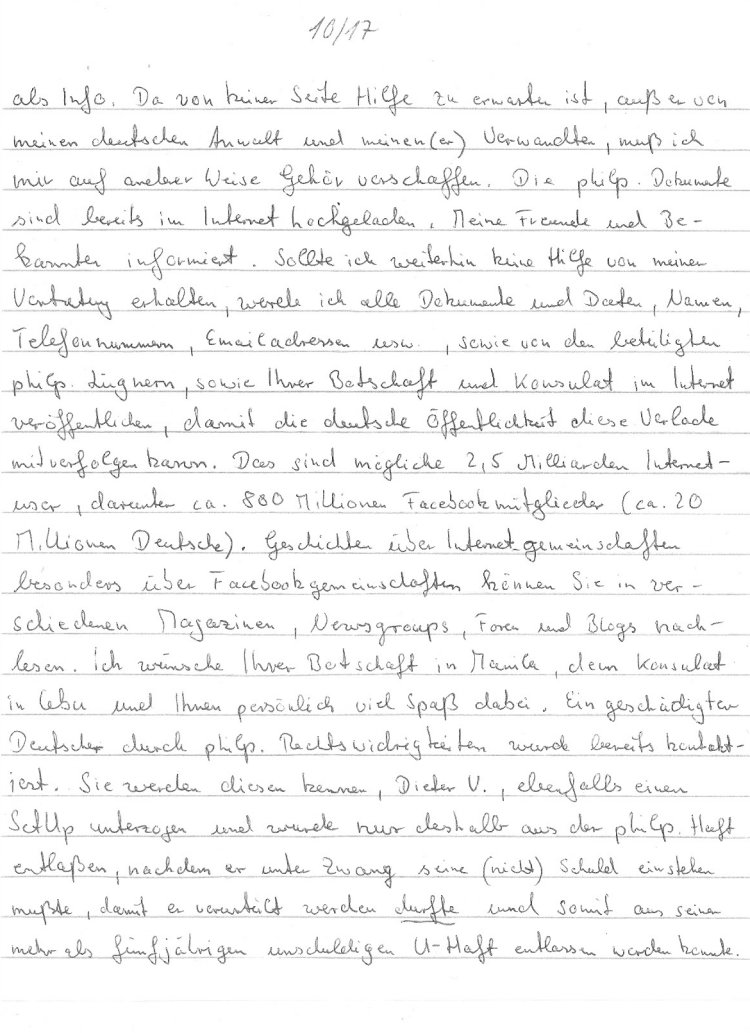 10/17
als Info. Da von keiner Seite Hilfe zu erwarten ist, außer von
meinen deutschen Anwalt und meinen(er) Verwandten, muß ich
mir auf anderer Weise Gehör verschaffen. Die philp. Dokumente
sind bereits im Internet hochgeladen. Meine Freunde und Be-
kannten informiert. Sollte ich weiterhin keine Hilfe von meiner
Vertretung erhalten, werde ich alle Dokumente und Daten, Namen,
Telefonnummern, Emailadressen usw., sowie von den beteiligten
philp. Lügnern, sowie Ihrer Botschaft und Konsulat im Internet
veröffentlichen, damit die deutsche Öffentlichkeit diese Verlade
mitverfolgen kann. Das sind mögliche 2,5 Milliarden Internet-
user, darunter ca. 800 Millionen Facebookmitglieder (ca. 20
Millionen Deutsche). Geschichten über Internetgemeinschaften
besonders über Facebookgemeinschaften können Sie in ver-
schiedenen Magazinen, Newsgroups, Foren und Blogs nach-
lesen. Ich wünsche Ihrer Botschaft in Manila, dem Konsulat
in Cebu und Ihnen persönlich viel Spaß dabei. Ein geschädigter
Deutscher durch philp. Rechtswidrigkeiten wurde bereits kontakt-
iert. Sie werden diesen kennen, Dieter V., ebenfalls einen
SetUp unterzogen und wurde nur deshalb aus der philp. Haft
entlaßen, nachdem er unter Zwang seine (nicht) Schuld einstehen
mußte, damit er verurteilt werden durfte und somit aus seiner
mehr als fünfjährigen unschuldigen U-Haft entlassen werden konnte.